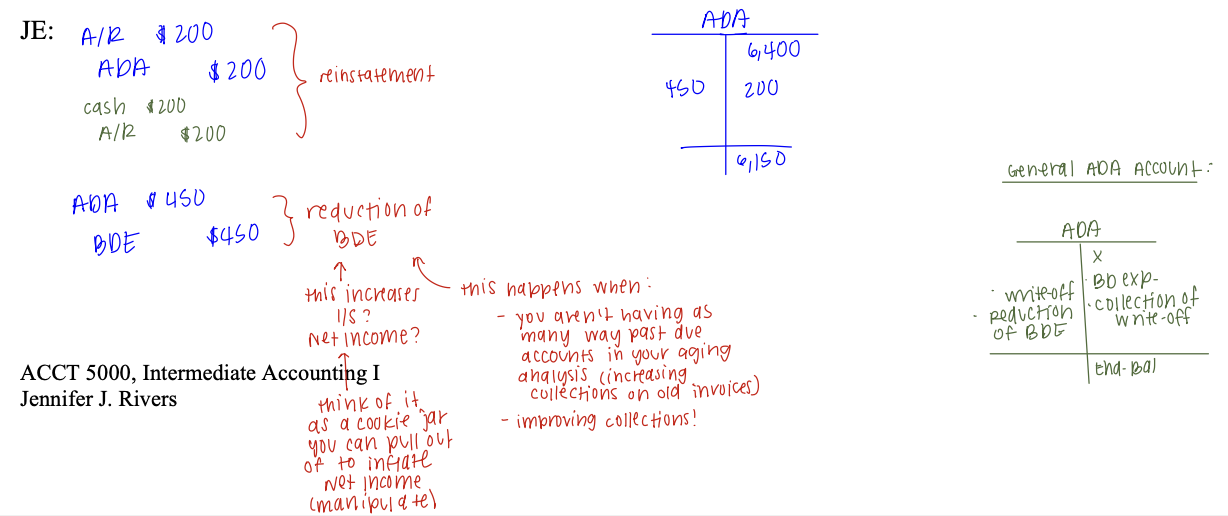 JE:
A/R $200
ADA $200
cash $200
A/R $200
reinstatement
ADA $450
BDE $450
reduction of
BDE
this increases
I/S?
Net income?
think of it
as a cookie jar
you can pull out
of to inflate
Net Income
(manipulate)
this happens when:
- you aren't having as
many way past due
accounts in your aging
analysis (increasing
collections on old invoices)
- improving collections!
ACCT 5000, Intermediate Accounting I
Jennifer J. Rivers
ADA
6,400
450 200
6,150
General ADA Account:
ADA
X
· write-off
· reduction
of BDE
· BD exp-
· collection of
write-off
End-Bal